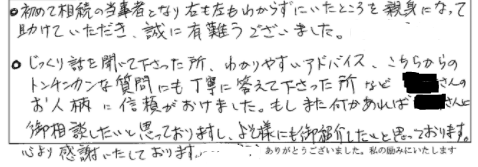 ○初めて相続の当事者となり右も左もわからずにいたところを親身になって
助けていただき、誠に有難うございました。
○じっくり話を聞いて下さった所、わかりやすいアドバイス、こちらからの
トンチンカンな質問にも丁寧に答えて下さった所など さんの
お人柄に信頼がおけました。もしまた何かあれば さんに
御相談したいと思っておりますし、よそ様にも御紹介したいと思っております。
心より感謝いたしております……
ありがとうございました。私の励みにいたします